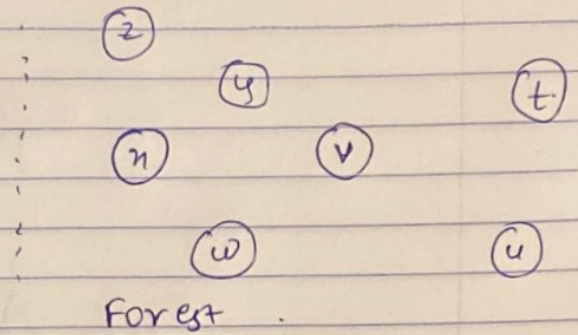 z
y
t
x
v
w
u
Forest.